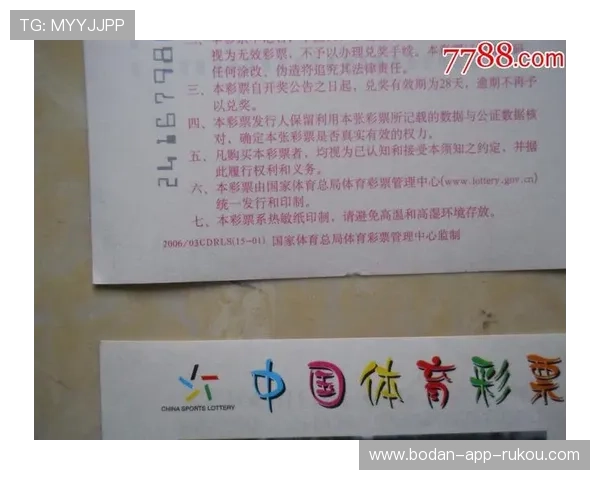 TG: MYYJJPP
7788.com
视为无效彩票，不予以办理兑奖手续。本彩
任何涂改、伪造将追究其法律责任。
三、本彩票自开奖公告之日起，兑奖有效期为28天，逾期不再予
以兑奖。
四、本彩票发行人保留利用本张彩票所记载的数据与公证数据核
对，确定本张彩票是否真实有效的权力。
五、凡购买本彩票者，均视为已认知和接受本须知之约定，并据
此履行权利和义务。
六、本彩票由国家体育总局体育彩票管理中心(www.lottery.gov.cn)
统一发行和印制。
七、本彩票系热敏纸印制，请避免高温和高湿环境存放。
2006/03CDRLS(15-01) 国家体育总局体育彩票管理中心监制
2416798
CHINA SPORTS LOTTERY
中国体育彩票
www.bodan-app-rukou.com